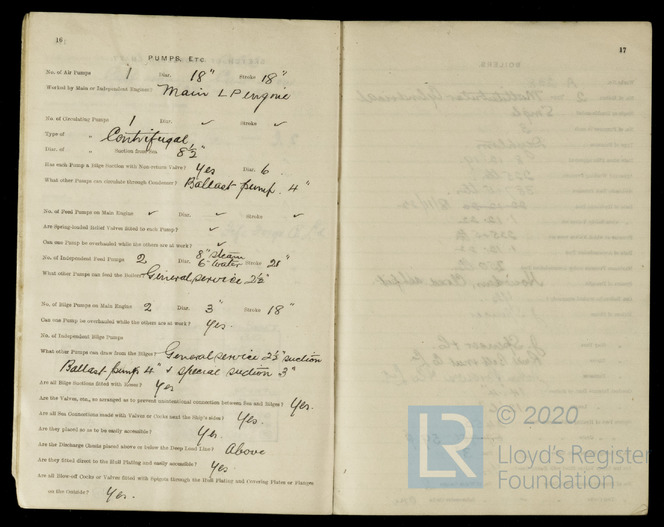 16
PUMPS, ETC.
No. of Air Pumps 1 Diar. 18" Stroke 18"
Worked by Main or Independent Engines? Main L P engine
No. of Circulating Pumps 1 Diar. ✓ Stroke ✓
Type of " Centrifugal
Diar. of " Suction from Sea 8½"
Has each Pump a Bilge Suction with Non-return Valve? Yes Diar. 6
What other Pumps can circulate through Condenser? Ballast pump 4"
No. of Feed Pumps on Main Engine ✓ Diar. ✓ Stroke ✓
Are Spring-loaded Relief Valves fitted to each Pump? ✓
Can one Pump be overhauled while the others are at work? ✓
No. of Independent Feed Pumps 2 Diar. 8" steam 6" water Stroke 21"
What other Pumps can feed the Boilers? General service 2½"
No. of Bilge Pumps on Main Engine 2 Diar. 3" Stroke 18"
Can one Pump be overhauled while the others are at work? Yes.
No. of Independent Bilge Pumps
What other Pumps can draw from the Bilges? General service 2½" suction
Ballast pump 4" & special suction 3"
Are all Bilge Suctions fitted with Roses? Yes
Are the Valves, &c., so arranged as to prevent unintentional connection between Sea and Bilges? Yes.
Are all Sea Connections made with Valves or Cocks next the Ship's sides? Yes.
Are they placed so as to be easily accessible? Yes.
Are the Discharge Chests placed above or below the Deep Load Line? Above
Are they fitted direct to the Hull Plating and easily accessible? Yes
Are all Blow-off Cocks or Valves fitted with Spigots through the Hull Plating and Covering Plates or Flanges
on the Outside? Yes.
17
© 2020
LR
Lloyd's Register
Foundation